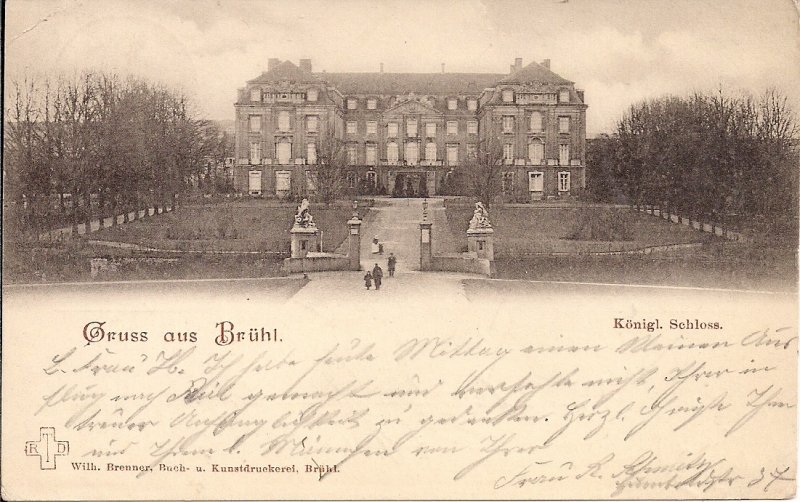 Gruss aus Brühl.
Königl. Schloss.
L. Frau H. Ich habe heute Mittag einen kleinen Aus-
flug nach Brühl gemacht und verfehle nicht, Ihrer in
treuer Anhänglichkeit zu gedenken. Herzl. Grüße Ihnen
und Ihrem l. Männchen von Ihrer
Frau R. Schmitz
37
R D
Wilh. Brenner, Buch- u. Kunstdruckerei, Brühl.